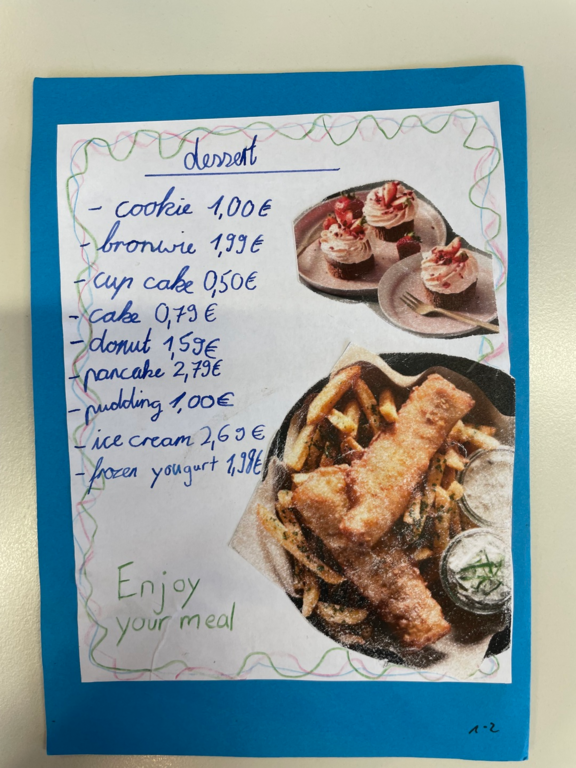 dessert
- cookie 1,00€
- bronwie 1,99€
- cup cake 0,50€
- cake 0,79€
- donut 1,59€
- pancake 2,79€
- pudding 1,00€
- ice cream 2,69€
- frozen yougurt 1,98€
Enjoy
your meal
1-2